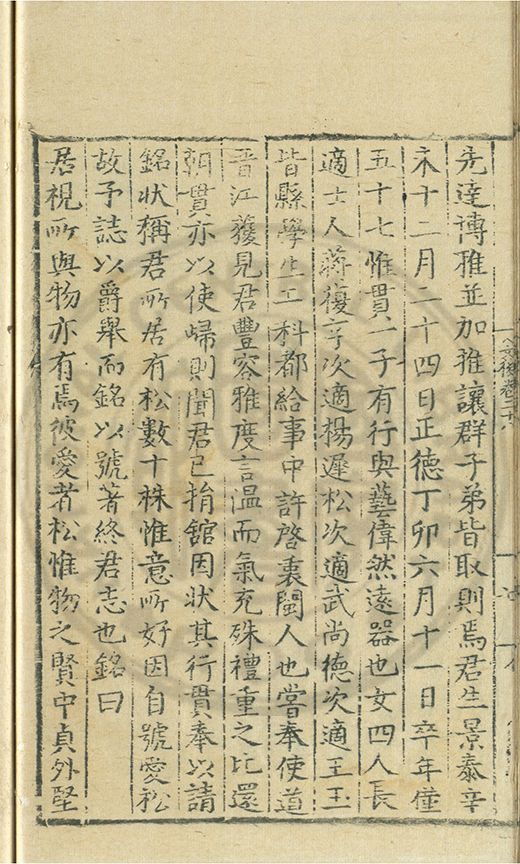 先達博雅並加推讓群子弟皆取則焉君生景泰辛
未十二月二十四日正德丁卯六月十一日卒年僅
五十七惟貫一子有行與藝偉然遠器也女四人長
適士人蔣復亨次適楊遲松次適武尚德次適王玉
皆縣學生工科都給事中許啓衷閩人也嘗奉使道
晋江獲見君豐容雅度言温而氣充殊禮重之比還
朝貫亦以使歸則聞君已捐舘因状其行貫奉以請
銘状稱君所居有松數十株惟意所好因自號愛松
故予誌以爵舉而銘以號著終君志也銘曰
居視所與物亦有焉彼愛者松惟物之賢中貞外堅